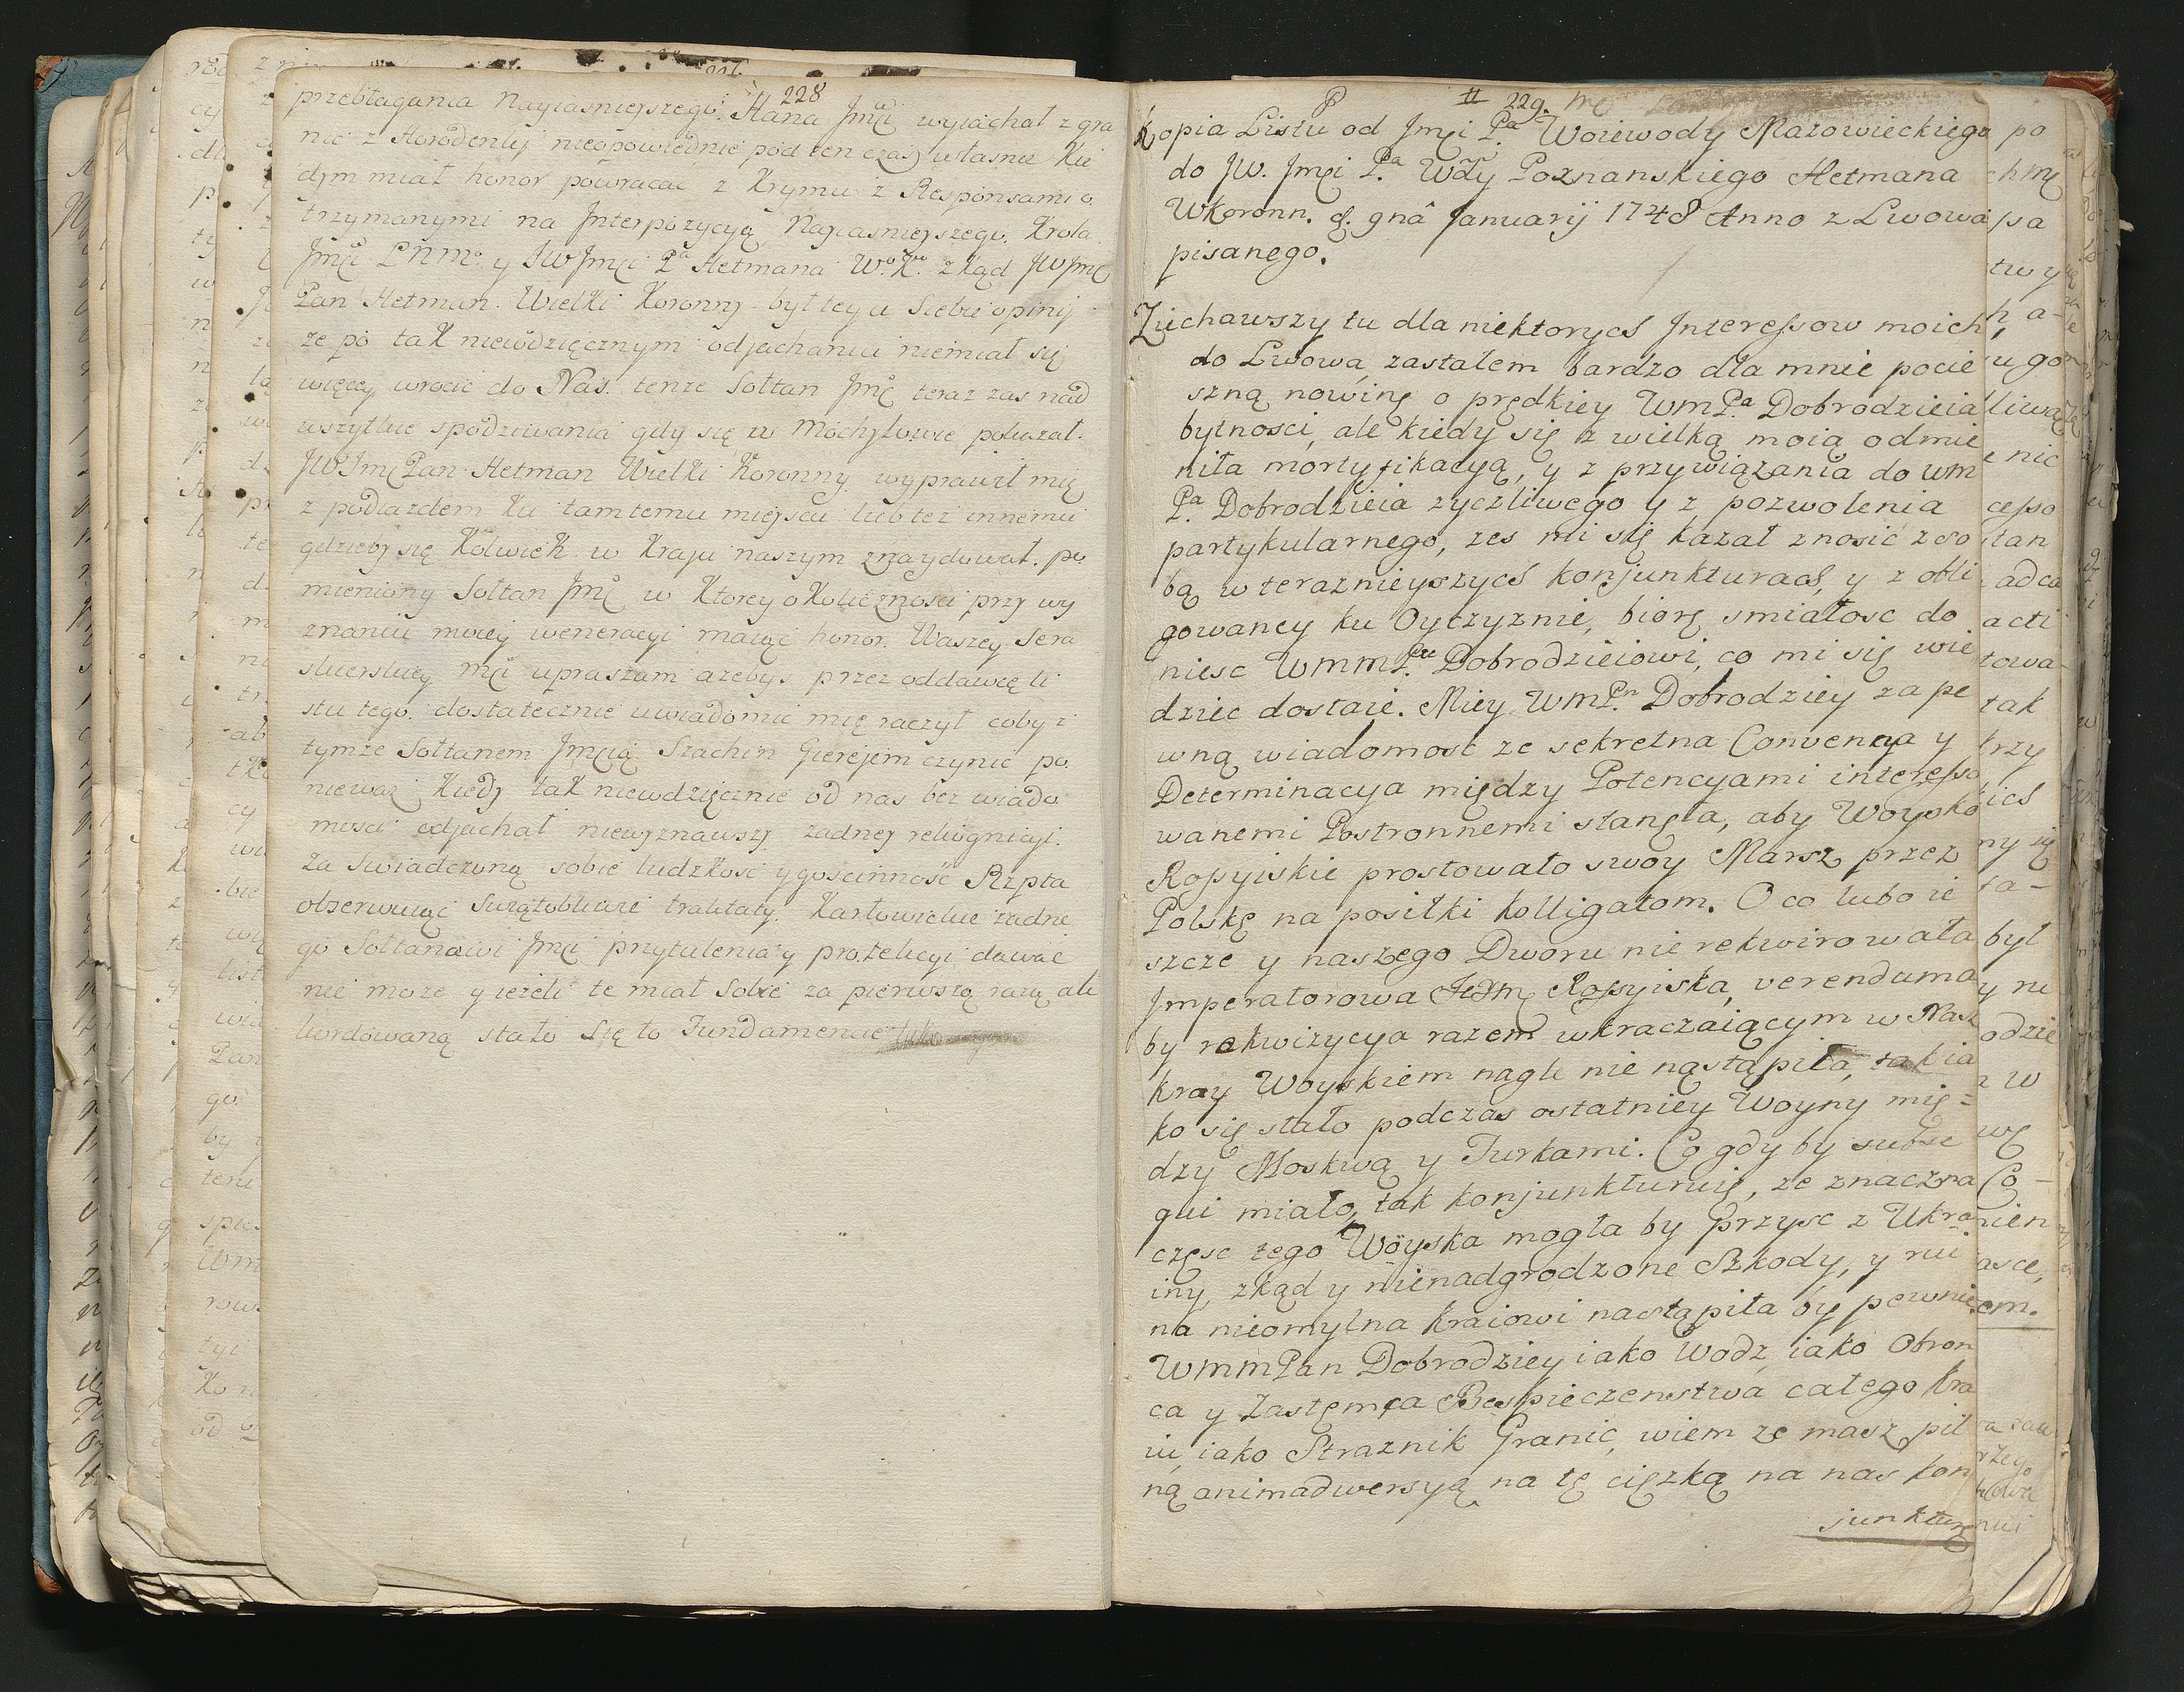 228
przebłagania Nayiasnieyszego Hana Jmci wyiachał z gra
nic z Horodenky nieopowiednie pod ten czas własnie kie
dym miał honor powracać z Krymu z Responsami o
trzymanymi na Interpozycyą Nayiasnieyszego Krola
Jmci PNMo y JWJmci Pa Hetmana W.o K.o zkąd JWJmc
Pan Hetman Wielki Koronny był tey u siebie opinij
że po tak niewdzięcznym odjachaniu niemiał się
więcey wrocić do Nas tenże Sołtan Jmc teraz zas nad
wszytkie spodziwania gdy się w Mochylowie pokazał.
JWJmcPan Hetman Wielki Koronny wyprawił mię
z podiazdem ku tamtemu mieyscu lub też innemu
gdzieby się kolwiek w kraju naszym znaydował. po
mieniony Sołtan Jmc w ktorey okoliczności przy wy
znaniu moiey weneracyi maiąc honor Waszey Sera
skierskiey mci upraszam ażebyś przez oddawcę li
stu tego dostatecznie uwiadomić mię raczył coby z
tymże Sołtanem Jmcią Szachin Gierejem czynić po
nieważ kiedy tak niewdzięcznie od nas bez wiado
mosci odjachał niewyznawszy żadney rekognicyi
za swiadczoną sobie ludzkość y gościnność Rzpta
obserwuiąc swiątobliwie traktaty Karłowickie żadne
go Sołtanowi Jmci przytulenia y protekcyi dawac
nie może y ieżeli te miał sobie za pierwszą razą ak
kordowaną stało się to Fundamencie
229.
Kopia Listu od Jmci Pa Woiewody Mazowieckiego
do JW. Jmci Pa Wdy Poznanskiego Hetmana
WKoronn. d. 9na Januarij 1748 Anno z Lwowa
pisanego.
Ziechawszy tu dla niektorych Interessow moich
do Lwowa, zastałem bardzo dla mnie pocie
szną nowinę o prędkiey WMPa Dobrodzieia
bytności, ale kiedy się z wielką moią odmie
niła mortyfikacyą, y z przywiązania do WM
Pa Dobrodzieia zyczliwego y z pozwolenia
partykularnego, zes mi się kazał znosić z so
bą w teraznieyszych konjunkturach, y z obli
gowaney ku Oyczyznie, biorę smiałosc do
niesc WMMPu Dobrodzieiowi, co mi się wie
dziec dostaie. Miey WMPn Dobrodziey za pe
wną wiadomosc ze sekretna Convencya y
Determinacya między Potencyami interesso
wanemi Postronnemi stanęła, aby Woysko
Rossyiskie prostowało swoy Marsz przez
Polskę na posiłki kolligatom. O co lubo ie
szcze y naszego Dworu nie rekwirowała
Imperatorowa Jeym Rossyiska, verendum a
by rekwizycya razem wkraczaiącym w Nasz
kray Woyskiem nagle nie nastąpiła, tak ia
ko się stało podczas ostatniey Woyny mię=
dzy Moskwą y Turkami. Co gdy by subse
qui miało, tak konjunkturuię, ze znaczna
częsc tego Woyska mogła by przysc z Ukra
iny, zkąd y nienadgrodzone Szkody, y rui
na nieomylna kraiowi nastąpiła by pewnie
WMMPan Dobrodziey iako Wodz, iako Obron
ca y Zastempca Bespieczenstwa całego kra
iu, iako Straznik Granic, wiem ze masz pil
ną animadwersyą na tę cięzką na nas kon
junkturę